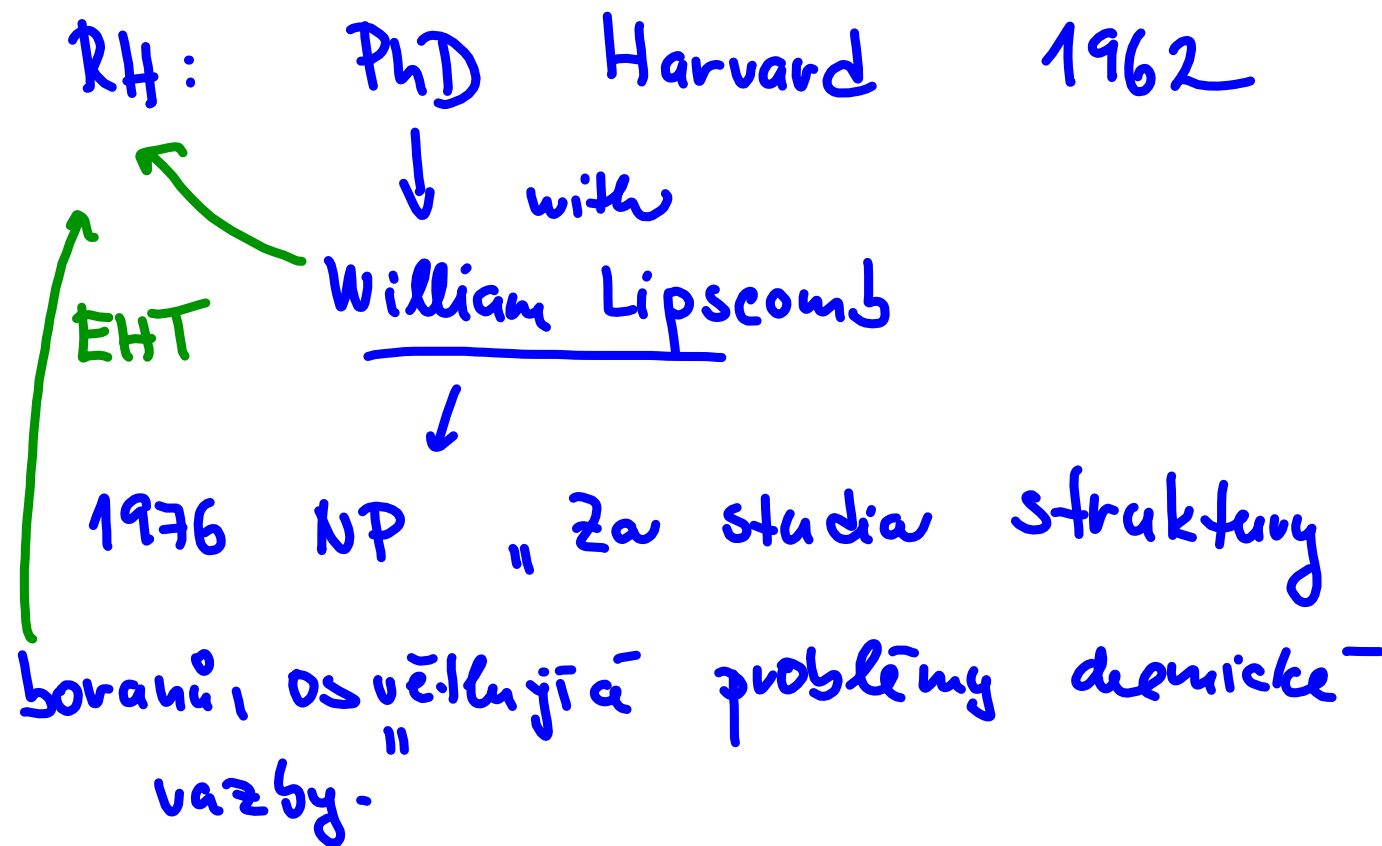 RH: PhD Harvard 1962
with
William Lipscomb
EHT
1976 NP „Za studia struktury
boranů, osvětlující problémy chemické
vazby."